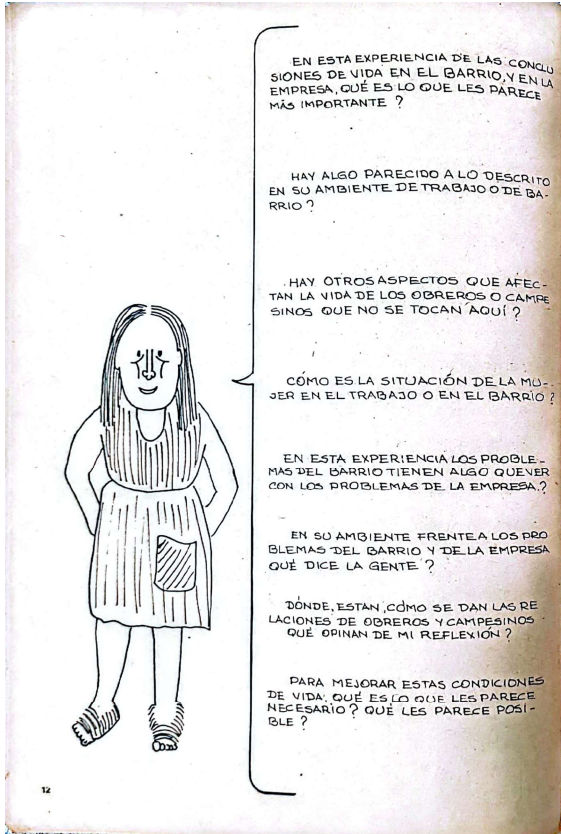 EN ESTA EXPERIENCIA DE LAS CONCLU
SIONES DE VIDA EN EL BARRIO, Y EN LA
EMPRESA, QUÉ ES LO QUE LES PARECE
MÁS IMPORTANTE ?
HAY ALGO PARECIDO A LO DESCRITO
EN SU AMBIENTE DE TRABAJO O DE BA-
RRIO ?
HAY OTROS ASPECTOS QUE AFEC-
TAN LA VIDA DE LOS OBREROS O CAMPE
SINOS QUE NO SE TOCAN AQUÍ ?
CÓMO ES LA SITUACIÓN DE LA MU-
JER EN EL TRABAJO O EN EL BARRIO ?
EN ESTA EXPERIENCIA LOS PROBLE-
MAS DEL BARRIO TIENEN ALGO QUE VER
CON LOS PROBLEMAS DE LA EMPRESA ?
EN SU AMBIENTE FRENTE A LOS PRO
BLEMAS DEL BARRIO Y DE LA EMPRESA
QUÉ DICE LA GENTE ?
DÓNDE, ESTAN, CÓMO SE DAN LAS RE
LACIONES DE OBREROS Y CAMPESINOS
QUÉ OPINAN DE MI REFLEXIÓN ?
PARA MEJORAR ESTAS CONDICIONES
DE VIDA, QUÉ ES LO QUE LES PARECE
NECESARIO ? QUÉ LES PARECE POSI-
BLE ?
12